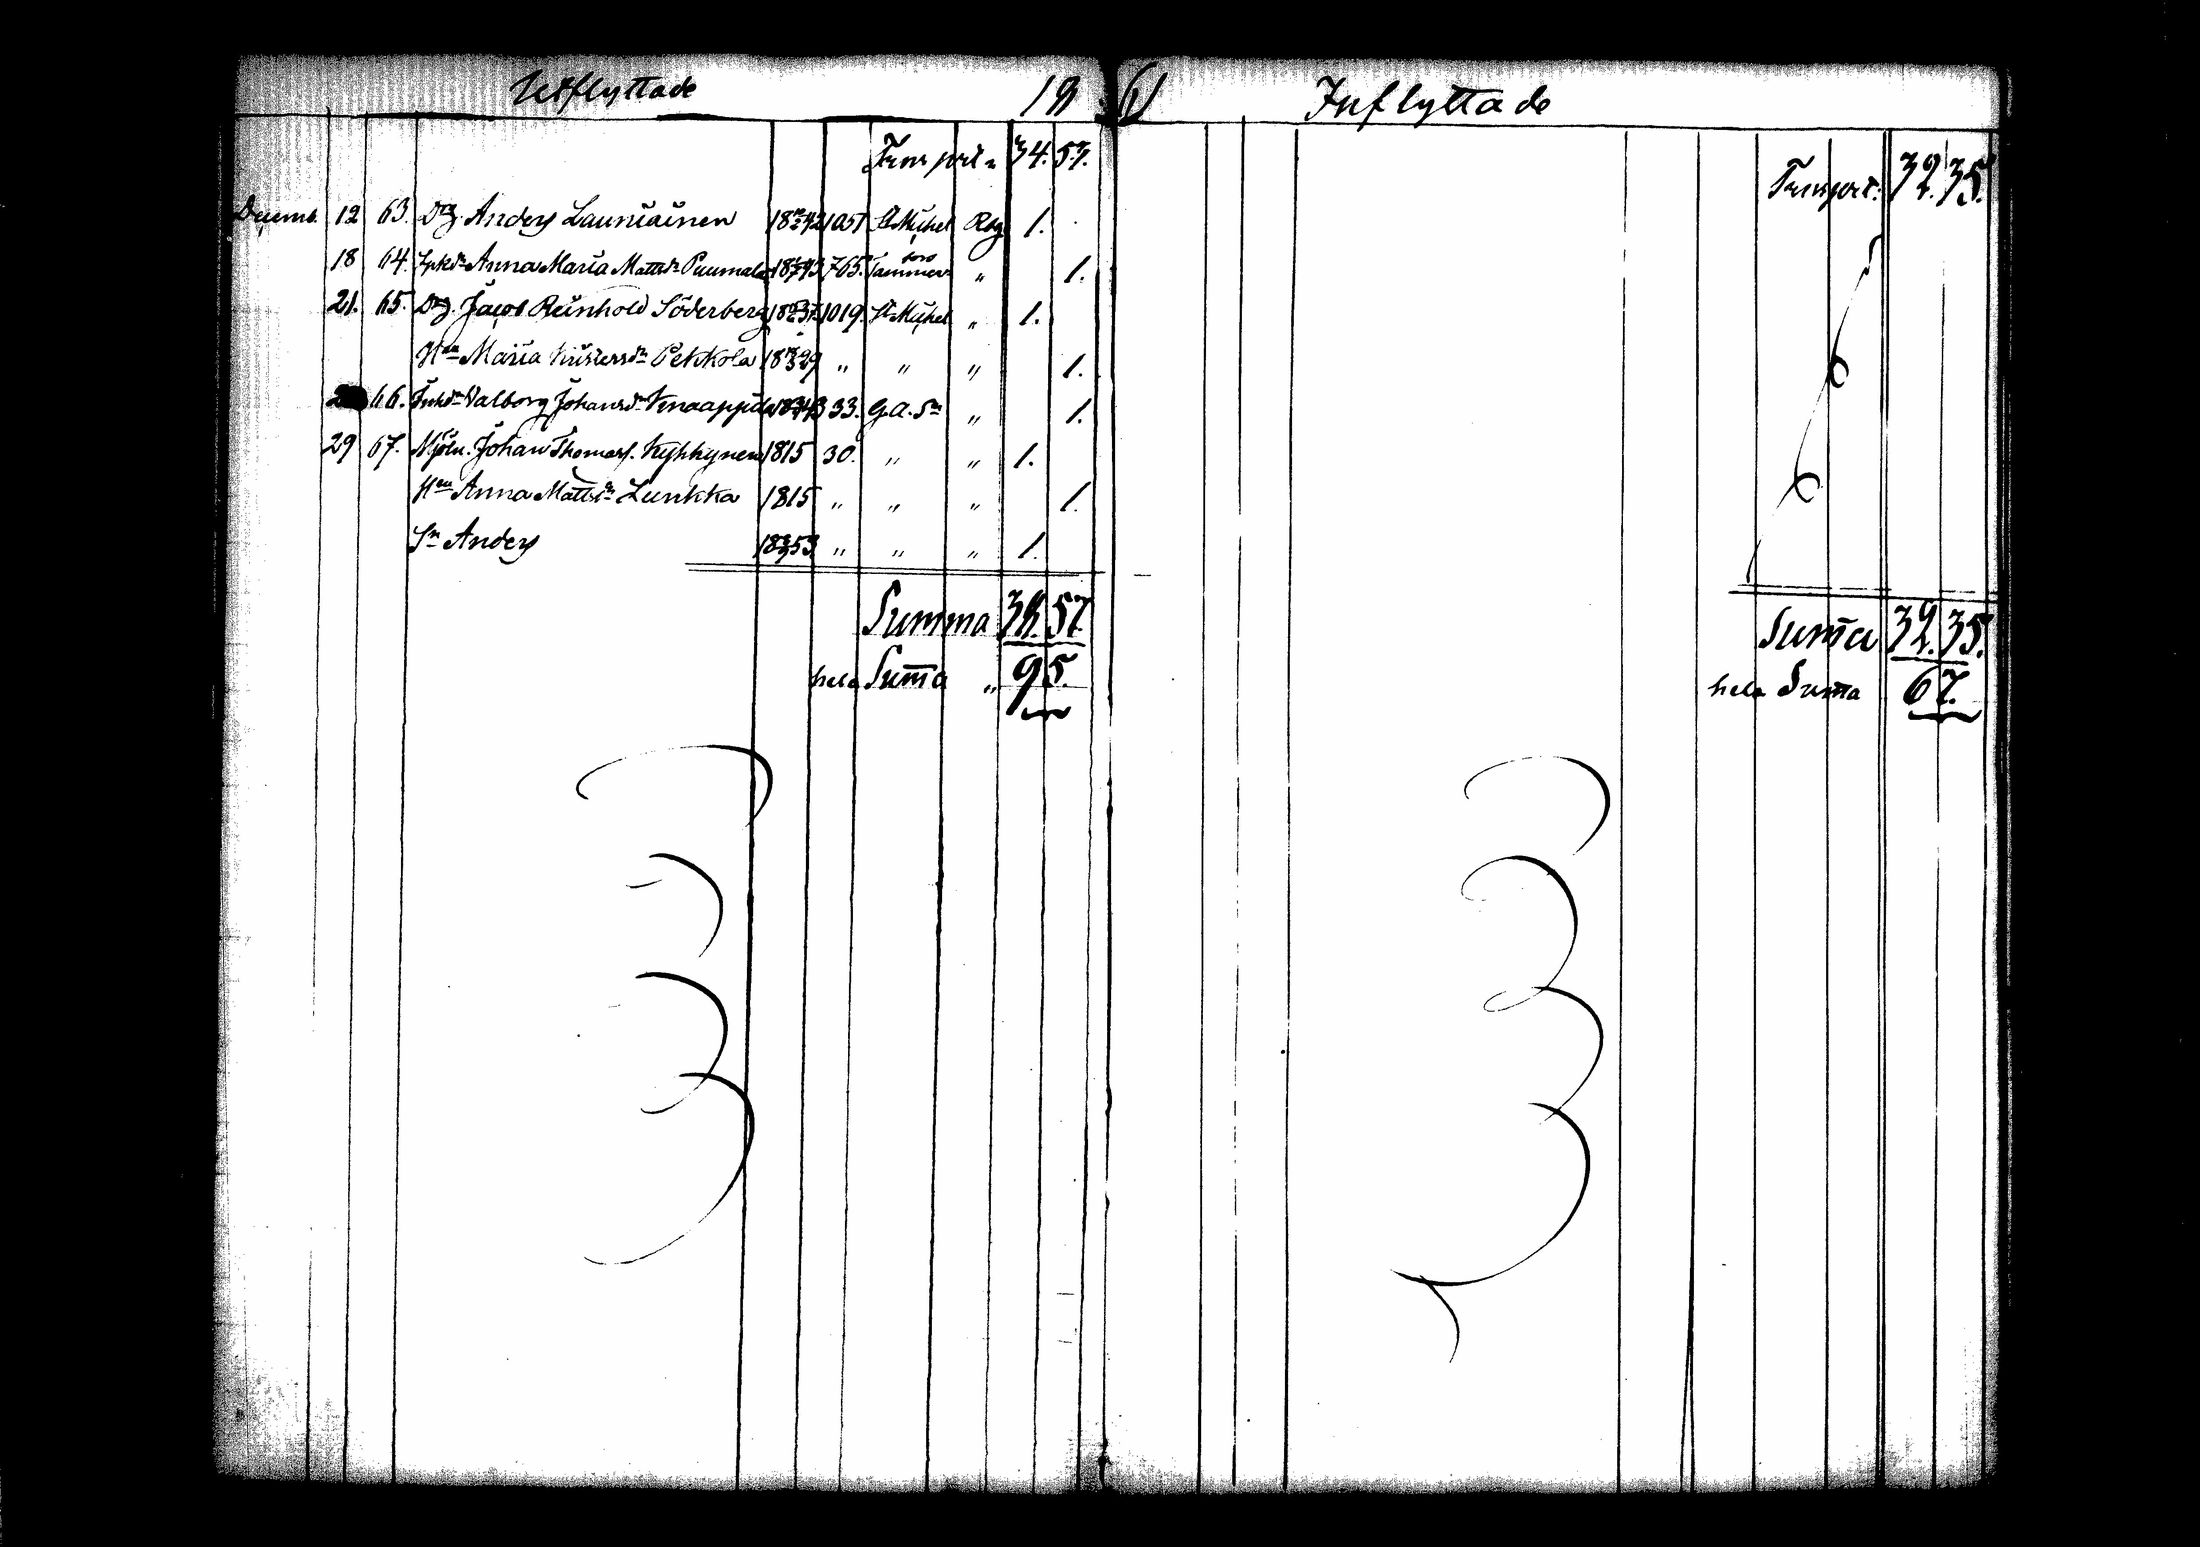 Utflyttade 18
Transport „ 34. 53.
Decemb. 12 63. Drg. Anders Launiainen 1842 1051 St Michel Rbg 1.
18 64. Anna Maria Mattsdr Puumala 1843 765. Tammerfors „ 1.
21. 65. Drg. Jacob Reinhold Söderberg 1837 1019. St Michel „ 1.
Hon Maria Pekkola 1829 „ „ „ 1.
66. Valborg Johansdr Knaappila 1843 33. G.a. Sn „ 1.
29 67. Mjöln. Johan Thomass. Kyhkynen 1815 30. „ „ 1.
Hon Anna Mattsdr Lunkka 1815 „ „ „ 1.
Sn Anders 1853 „ „ „ 1.
Summa 38. 57.
hela Suma „ 95.
Inflyttade
Transport: 32. 35.
Suma 32. 35.
hela Suma 67.